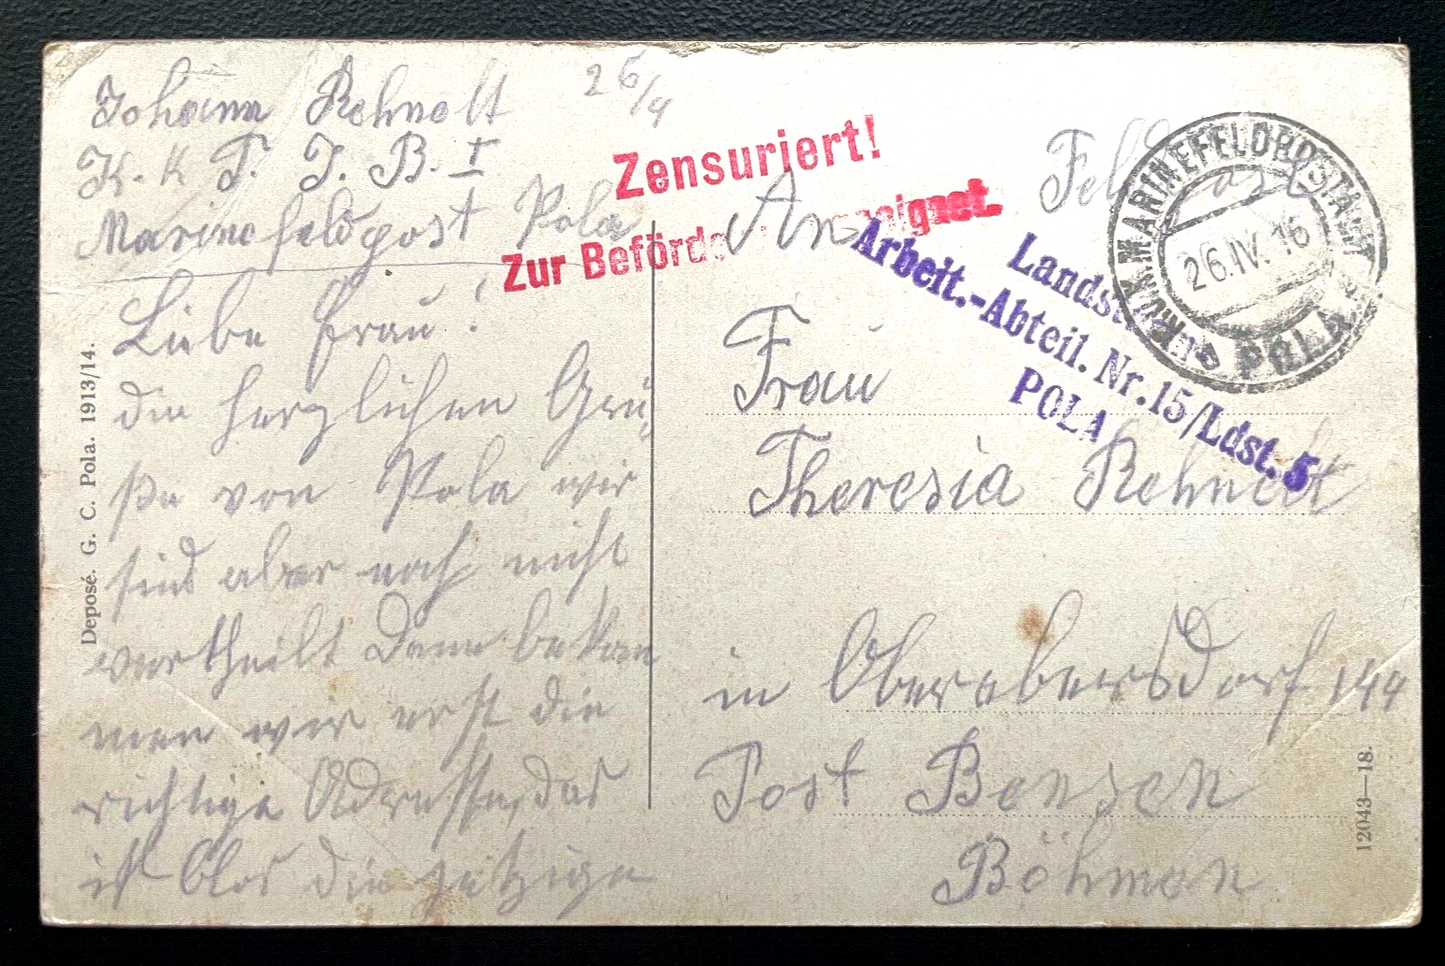 Johann Rehnelt 26/4
K. k T. J. B. I
Marinefeldpost Pola
Liebe Frau!
die herzlichen Grü,
ße von Pola wir
sind aber noch nicht
vertheilt Dann bekom
men wir erst die
richtige Adresse, das
ist blos die jetzige
Zensuriert!
Zur Beförde eignet.
An
Feldpost
K.U.K. MARINEFELDPOSTAMT
26.IV.16
POLA
Arbeit.-Abteil. Nr.15/Ldst. 5
POLA
Frau
Theresia Rehnelt
in Oberebersdorf 144
Post Bensen
Böhmen
Deposé. G. C. Pola. 1913/14.
12043—18.